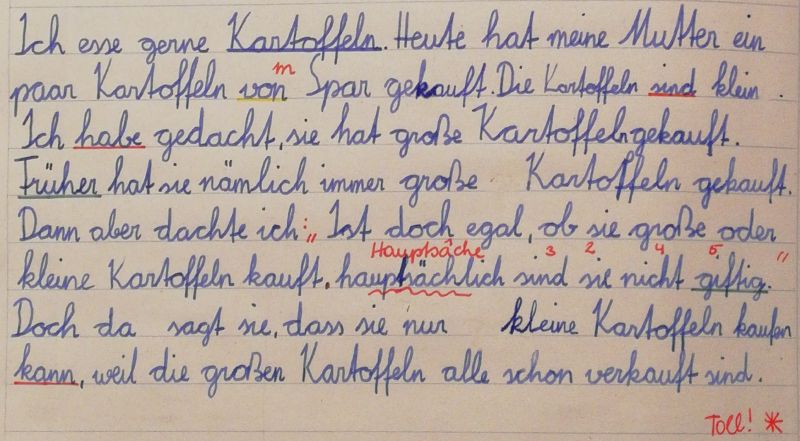 Ich esse gerne Kartoffeln. Heute hat meine Mutter ein
m
paar Kartoffeln von Spar gekauft. Die Kartoffeln sind klein.
Ich habe gedacht, sie hat große Kartoffeln gekauft.
Früher hat sie nämlich immer große Kartoffeln gekauft.
Dann aber dachte ich: „Ist doch egal, ob sie große oder
Hauptsache 3 2 4 5 "
kleine Kartoffeln kauft, hauptsächlich sind sie nicht giftig.
Doch da sagt sie, dass sie nur kleine Kartoffeln kaufen
kann, weil die großen Kartoffeln alle schon verkauft sind.
Toll! *